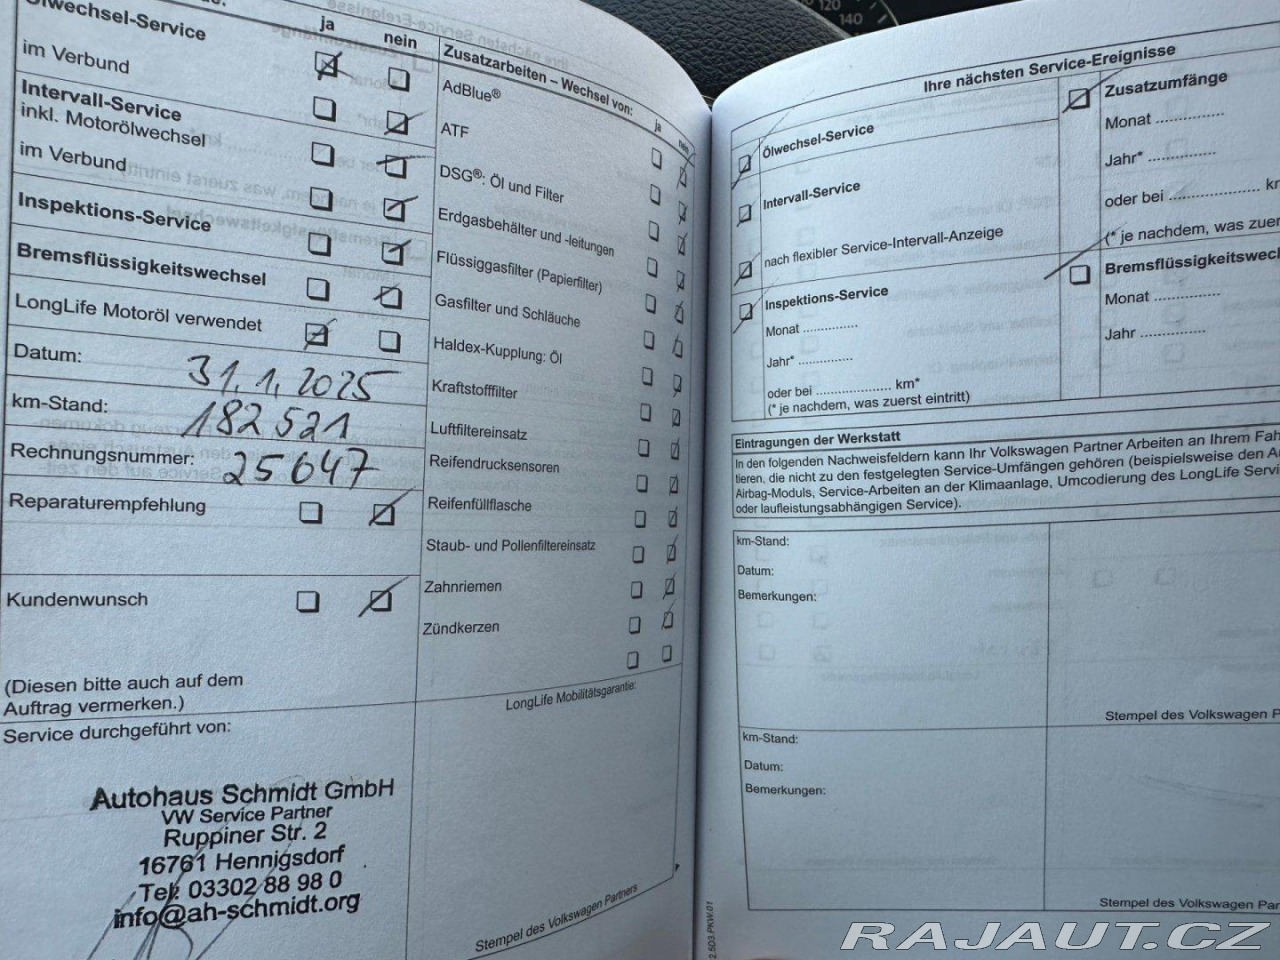 120
140
ja
nein
Ölwechsel-Service
im Verbund
Intervall-Service
inkl. Motorölwechsel
im Verbund
Inspektions-Service
Bremsflüssigkeitswechsel
LongLife Motoröl verwendet
Datum: 31.1.2025
km-Stand: 182521
Rechnungsnummer: 25047
Reparaturempfehlung
Kundenwunsch
(Diesen bitte auch auf dem
Auftrag vermerken.)
Service durchgeführt von:
Autohaus Schmidt GmbH
VW Service Partner
Ruppiner Str. 2
16761 Hennigsdorf
Tel: 03302 88 98 0
info@ah-schmidt.org
Zusatzarbeiten – Wechsel von:
ja
nein
AdBlue®
ATF
DSG®: Öl und Filter
Erdgasbehälter und -leitungen
Flüssiggasfilter (Papierfilter)
Gasfilter und Schläuche
Haldex-Kupplung: Öl
Kraftstofffilter
Luftfiltereinsatz
Reifendrucksensoren
Reifenfüllflasche
Staub- und Pollenfiltereinsatz
Zahnriemen
Zündkerzen
LongLife Mobilitätsgarantie:
Stempel des Volkswagen Partners
Ihre nächsten Service-Ereignisse
Ölwechsel-Service
Intervall-Service
nach flexibler Service-Intervall-Anzeige
Inspektions-Service
Monat ..............
Jahr* ..............
oder bei .................... km*
(* je nachdem, was zuerst eintritt)
Zusatzumfänge
Monat ................
Jahr* ................
oder bei ..................... k
(* je nachdem, was zuers
Bremsflüssigkeitswec
Monat ................
Jahr ................
Eintragungen der Werkstatt
In den folgenden Nachweisfeldern kann Ihr Volkswagen Partner Arbeiten an Ihrem Fah
tieren, die nicht zu den festgelegten Service-Umfängen gehören (beispielsweise den A
Airbag-Moduls, Service-Arbeiten an der Klimaanlage, Umcodierung des LongLife Servi
oder laufleistungsabhängigen Service).
km-Stand:
Datum:
Bemerkungen:
Stempel des Volkswagen Pa
km-Stand:
Datum:
Bemerkungen:
Stempel des Volkswagen Par
2.503.PKW.01
RAJAUT.CZ